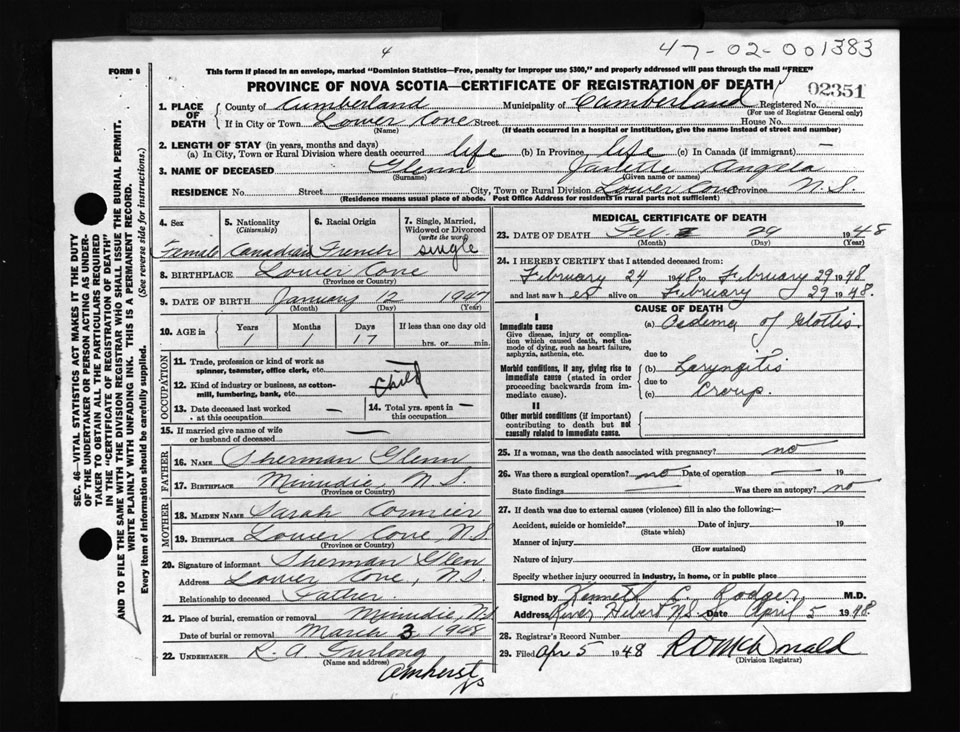 47-02-001383
4
FORM 6
This form if placed in an envelope, marked "Dominion Statistics—Free, penalty for improper use $300," and properly addressed will pass through the mail "FREE"
PROVINCE OF NOVA SCOTIA—CERTIFICATE OF REGISTRATION OF DEATH
02351
1. PLACE OF DEATH
County of Cumberland Municipality of Cumberland Registered No.
(For use of Registrar General only)
If in City or Town Lower Cove Street House No.
(Name) (If death occurred in a hospital or institution, give the name instead of street and number)
2. LENGTH OF STAY (in years, months and days)
(a) In City, Town or Rural Division where death occurred life (b) In Province life (c) In Canada (if immigrant) —
3. NAME OF DECEASED Glenn Janette Angela
(Surname) (Given name or names)
RESIDENCE No. Street City, Town or Rural Division Lower Cove Province N.S.
(Residence means usual place of abode. Post Office Address for residents in rural parts not sufficient)
4. Sex Female
5. Nationality (Citizenship) Canadian
6. Racial Origin French
7. Single, Married, Widowed or Divorced (write the word) Single
8. BIRTHPLACE Lower Cove
(Province or Country)
9. DATE OF BIRTH January 12 1947
(Month) (Day) (Year)
10. AGE in Years Months Days If less than one day old
1 1 17 hrs. or min.
OCCUPATION
11. Trade, profession or kind of work as spinner, teamster, office clerk, etc.
12. Kind of industry or business, as cotton-mill, lumbering, bank, etc.
Child
13. Date deceased last worked at this occupation —
14. Total yrs. spent in this occupation —
15. If married give name of wife or husband of deceased —
FATHER
16. NAME Sherman Glenn
17. BIRTHPLACE Minudie, N.S.
(Province or Country)
MOTHER
18. MAIDEN NAME Sarah Cormier
19. BIRTHPLACE Lower Cove, N.S.
(Province or Country)
20. Signature of informant Sherman Glen
Address Lower Cove, N.S.
Relationship to deceased Father
21. Place of burial, cremation or removal Minudie, N.S.
Date of burial or removal March 3 1948
22. UNDERTAKER R. A. Furlong
(Name and address)
Amherst NS
MEDICAL CERTIFICATE OF DEATH
23. DATE OF DEATH Feb. 29 1948
(Month) (Day) (Year)
24. I HEREBY CERTIFY that I attended deceased from:
February 24 1948 to February 29 1948
and last saw h er alive on February 29 1948.
CAUSE OF DEATH
I
Immediate cause
Give disease, injury or complication which caused death, not the mode of dying, such as heart failure, asphyxia, asthenia, etc.
(a) Oedema of Glottis.
due to
Morbid conditions, if any, giving rise to immediate cause (stated in order proceeding backwards from immediate cause).
(b) Laryngitis
due to
(c) Croup.
II
Other morbid conditions (if important) contributing to death but not causally related to immediate cause.
25. If a woman, was the death associated with pregnancy? no
26. Was there a surgical operation? no Date of operation — 19
State findings — Was there an autopsy? no
27. If death was due to external causes (violence) fill in also the following:—
Accident, suicide or homicide? Date of injury 19
(State which)
Manner of injury
(How sustained)
Nature of injury
Specify whether injury occurred in industry, in home, or in public place
Signed by Kenneth C. Rodger M.D.
Address River Hebert N.S. Date April 5 1948
28. Registrar's Record Number
29. Filed Apr 5 1948 R O McDonald
(Division Registrar)
SEC. 46—VITAL STATISTICS ACT MAKES IT THE DUTY
OF THE UNDERTAKER OR PERSON ACTING AS UNDER-
TAKER TO OBTAIN ALL THE PARTICULARS REQUIRED
IN THE "CERTIFICATE OF REGISTRATION OF DEATH"
AND TO FILE THE SAME WITH THE DIVISION REGISTRAR WHO SHALL ISSUE THE BURIAL PERMIT.
WRITE PLAINLY WITH UNFADING INK. THIS IS A PERMANENT RECORD.
Every item of information should be carefully supplied. (See reverse side for instructions.)